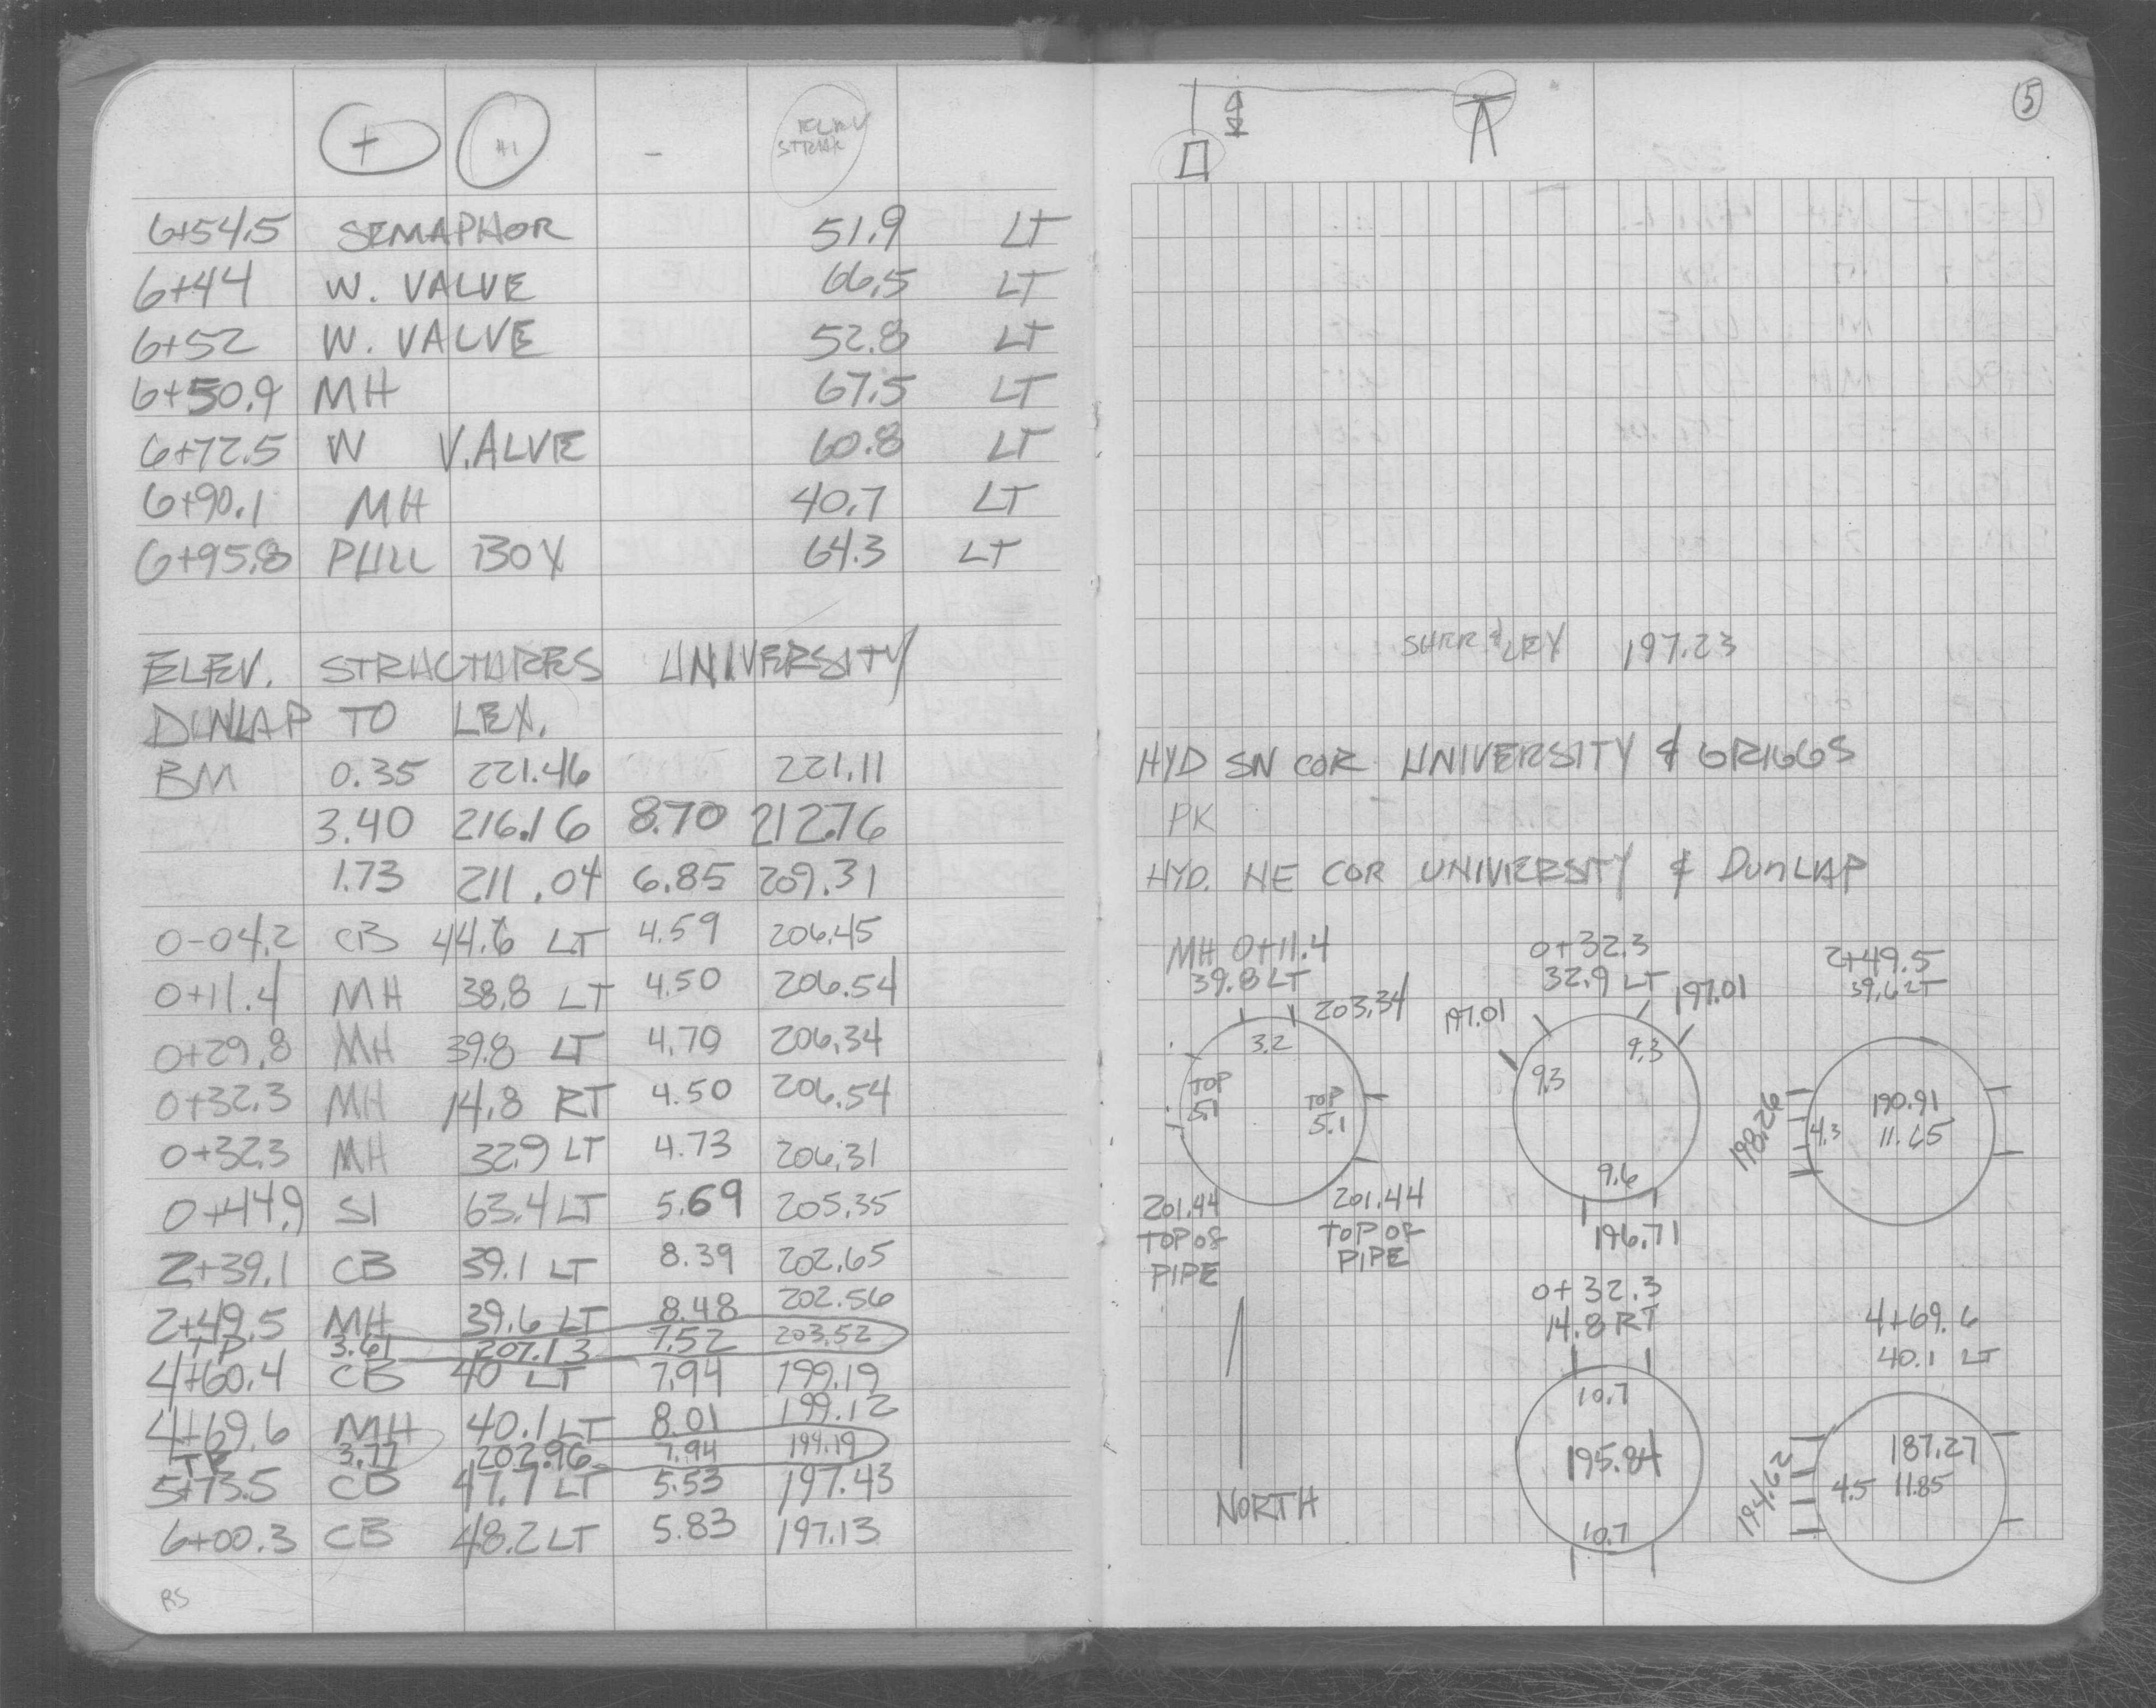 + HI - ELEV
STRUK
6+54.5 SEMAPHOR 51.9 LT
6+44 W. VALVE 66.5 LT
6+52 W. VALVE 52.8 LT
6+50.9 MH 67.5 LT
6+72.5 W V.ALVE 60.8 LT
6+90.1 MH 40.7 LT
6+95.8 PULL BOX 64.3 LT
ELEV. STRUCTURES UNIVERSITY
DUNLAP TO LEX.
BM 0.35 221.46 221.11
3.40 216.16 8.70 212.76
1.73 211.04 6.85 209.31
0-04.2 CB 44.6 LT 4.59 206.45
0+11.4 MH 38.8 LT 4.50 206.54
0+29.8 MH 39.8 LT 4.70 206.34
0+32.3 MH 14.8 RT 4.50 206.54
0+32.3 MH 32.9 LT 4.73 206.31
0+44.9 SI 63.4 LT 5.69 205.35
2+39.1 CB 39.1 LT 8.39 202.65
2+49.5 MH 39.6 LT 8.48 202.56
TP 3.61 207.13 7.52 203.52
4+60.4 CB 40 LT 7.94 199.19
4+69.6 MH 40.1 LT 8.01 199.12
TP 3.77 202.96 7.94 199.19
5+73.5 CB 47.7 LT 5.53 197.43
6+00.3 CB 48.2 LT 5.83 197.13
RS
5
& LEX 197.23
HYD SN COR. UNIVERSITY & GRIGGS
PK
HYD. NE COR UNIVERSITY & DUNLAP
MH 0+11.4
39.8 LT
203.34
3.2
TOP
5.1
TOP
5.1
201.44
TOP OF
PIPE
201.44
TOP OF
PIPE
0+32.3
32.9 LT
197.01
197.01
9.3
9.3
9.6
196.71
2+49.5
39.6 LT
198.26
4.3
190.91
11.65
NORTH
0+32.3
14.8 RT
10.7
195.84
10.7
4+69.6
40.1 LT
194.62
187.27
4.5 11.85